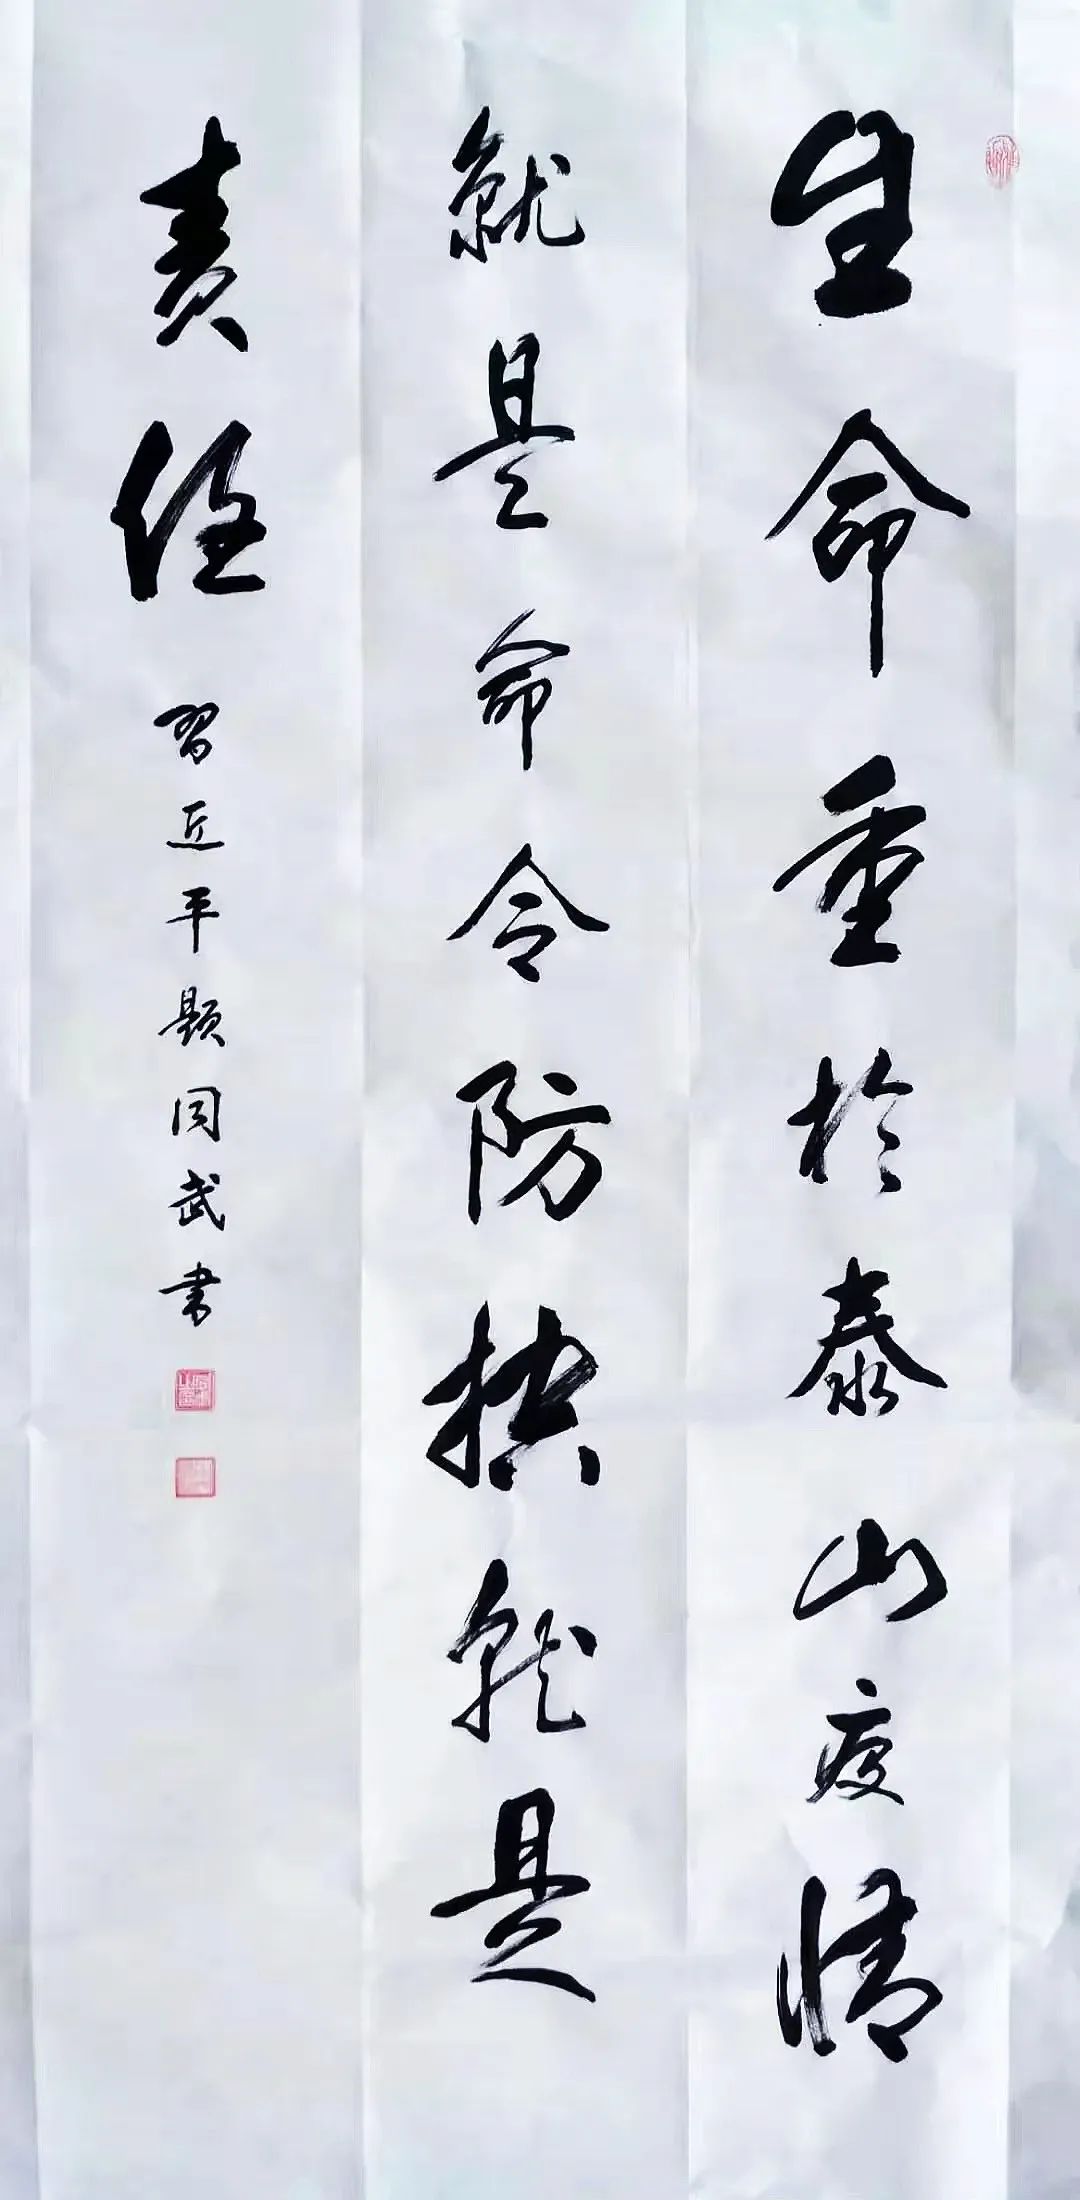 生命重於泰山疫情
就是命令防控就是
责任
習近平题武書